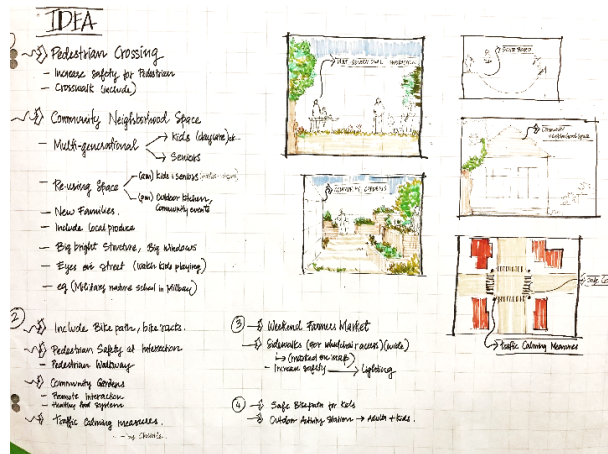 IDEA
Pedestrian Crossing
- Increase Safety for Pedestrian
- Crosswalk (include)
Community Neighborhood Space
- Multi-generational
Kids (daycare)
Seniors
- Re-using Space
(am) Kids + seniors
(pm) Outdoor Kitchen,
Community events
- New Families.
- Include local produce
- Big bright Structure, Big Windows
- Eyes on Street (watch kids playing)
- eg (Military nature school in
2
Include Bike path, bike racks.
Pedestrian Safety at Intersection
- Pedestrian Walkway
Community Gardens
- Promote Interaction
- Healthy Food Systems
Traffic Calming measures.
3
Weekend Farmers Market
Sidewalks (for wheelchair access) (wide)
(marked on map)
- Increase Safety
Lighting
4
Safe Bikepath for Kids
Outdoor Activity Stations → Adults + Kids.
Community Gardens
Community
Neighborhood Space
Safe
Traffic Calming Measures